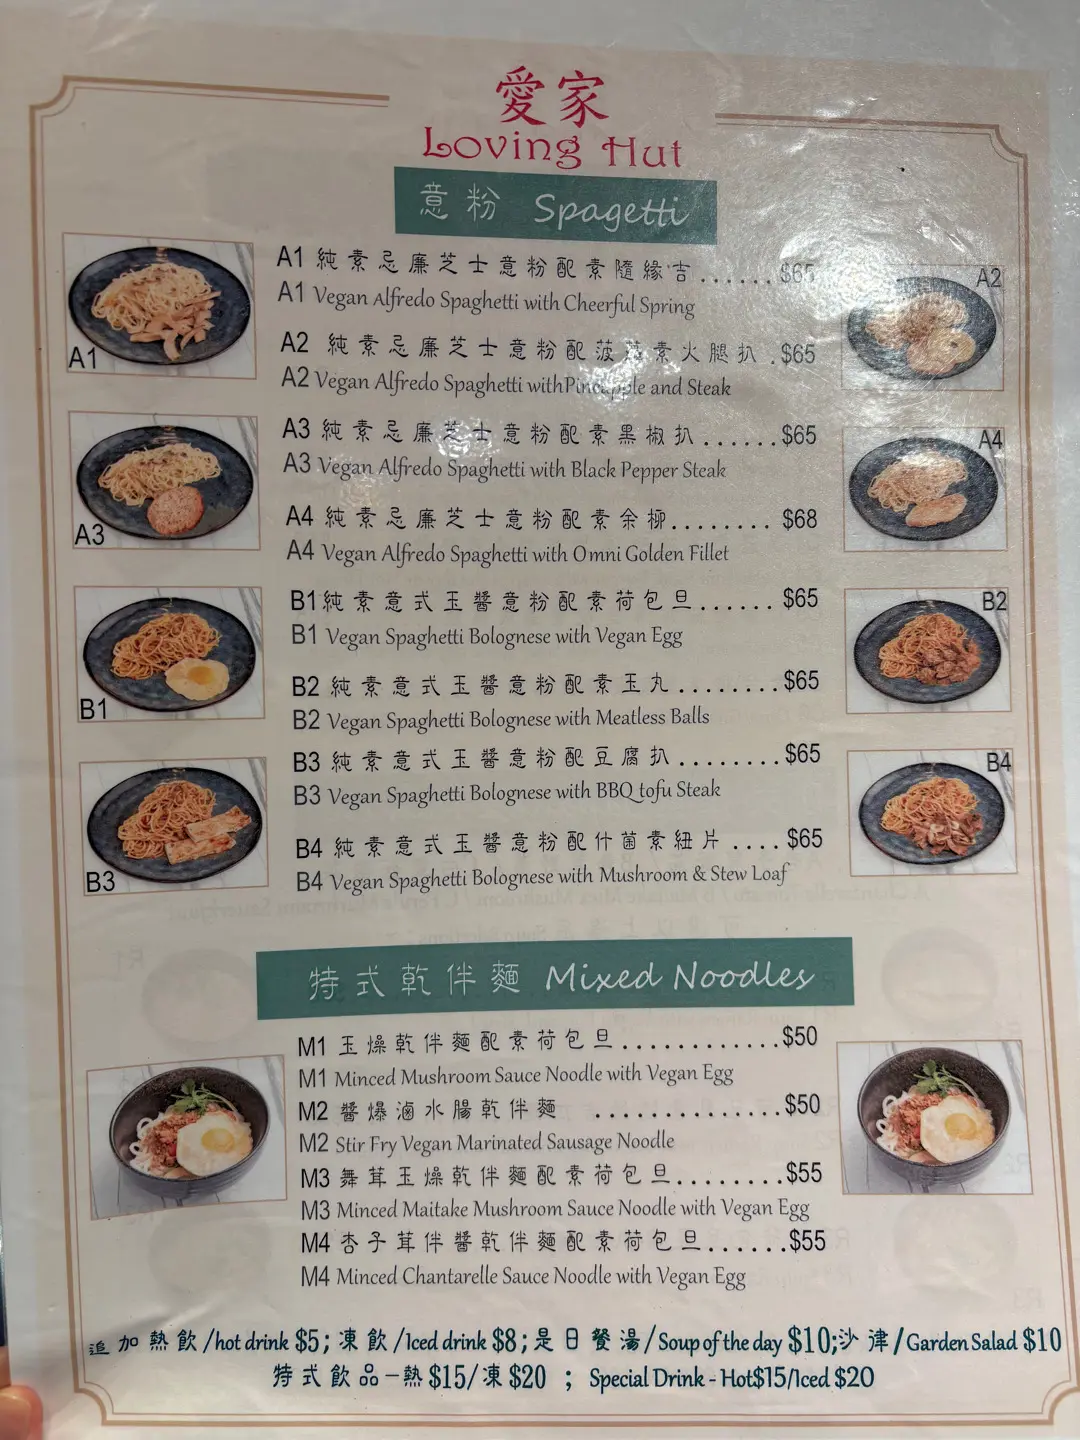 愛家
Loving Hut
意粉 Spagetti
A1 純素忌廉芝士意粉配素隨緣吉......$65
A1 Vegan Alfredo Spaghetti with Cheerful Spring
A2 純素忌廉芝士意粉配菠蘿素火腿扒.$65
A2 Vegan Alfredo Spaghetti withPineapple and Steak
A3 純素忌廉芝士意粉配素黑椒扒......$65
A3 Vegan Alfredo Spaghetti with Black Pepper Steak
A4 純素忌廉芝士意粉配素余柳........$68
A4 Vegan Alfredo Spaghetti with Omni Golden Fillet
B1純素意式玉醬意粉配素荷包旦......$65
B1 Vegan Spaghetti Bolognese with Vegan Egg
B2 純素意式玉醬意粉配素玉丸........$65
B2 Vegan Spaghetti Bolognese with Meatless Balls
B3 純素意式玉醬意粉配豆腐扒........$65
B3 Vegan Spaghetti Bolognese with BBQ tofu Steak
B4 純素意式玉醬意粉配什菌素紐片....$65
B4 Vegan Spaghetti Bolognese with Mushroom & Stew Loaf
A1
A2
A3
A4
B1
B2
B3
B4
特式乾伴麵 Mixed Noodles
M1 玉燥乾伴麵配素荷包旦............$50
M1 Minced Mushroom Sauce Noodle with Vegan Egg
M2 醬爆滷水腸乾伴麵 ..............$50
M2 Stir Fry Vegan Marinated Sausage Noodle
M3 舞茸玉燥乾伴麵配素荷包旦........$55
M3 Minced Maitake Mushroom Sauce Noodle with Vegan Egg
M4 杏子茸伴醬乾伴麵配素荷包旦......$55
M4 Minced Chantarelle Sauce Noodle with Vegan Egg
追加熱飲/hot drink $5;凍飲/Iced drink $8;是日餐湯/Soup of the day $10;沙律/Garden Salad $10
特式飲品-熱$15/凍$20 ; Special Drink - Hot$15/Iced $20